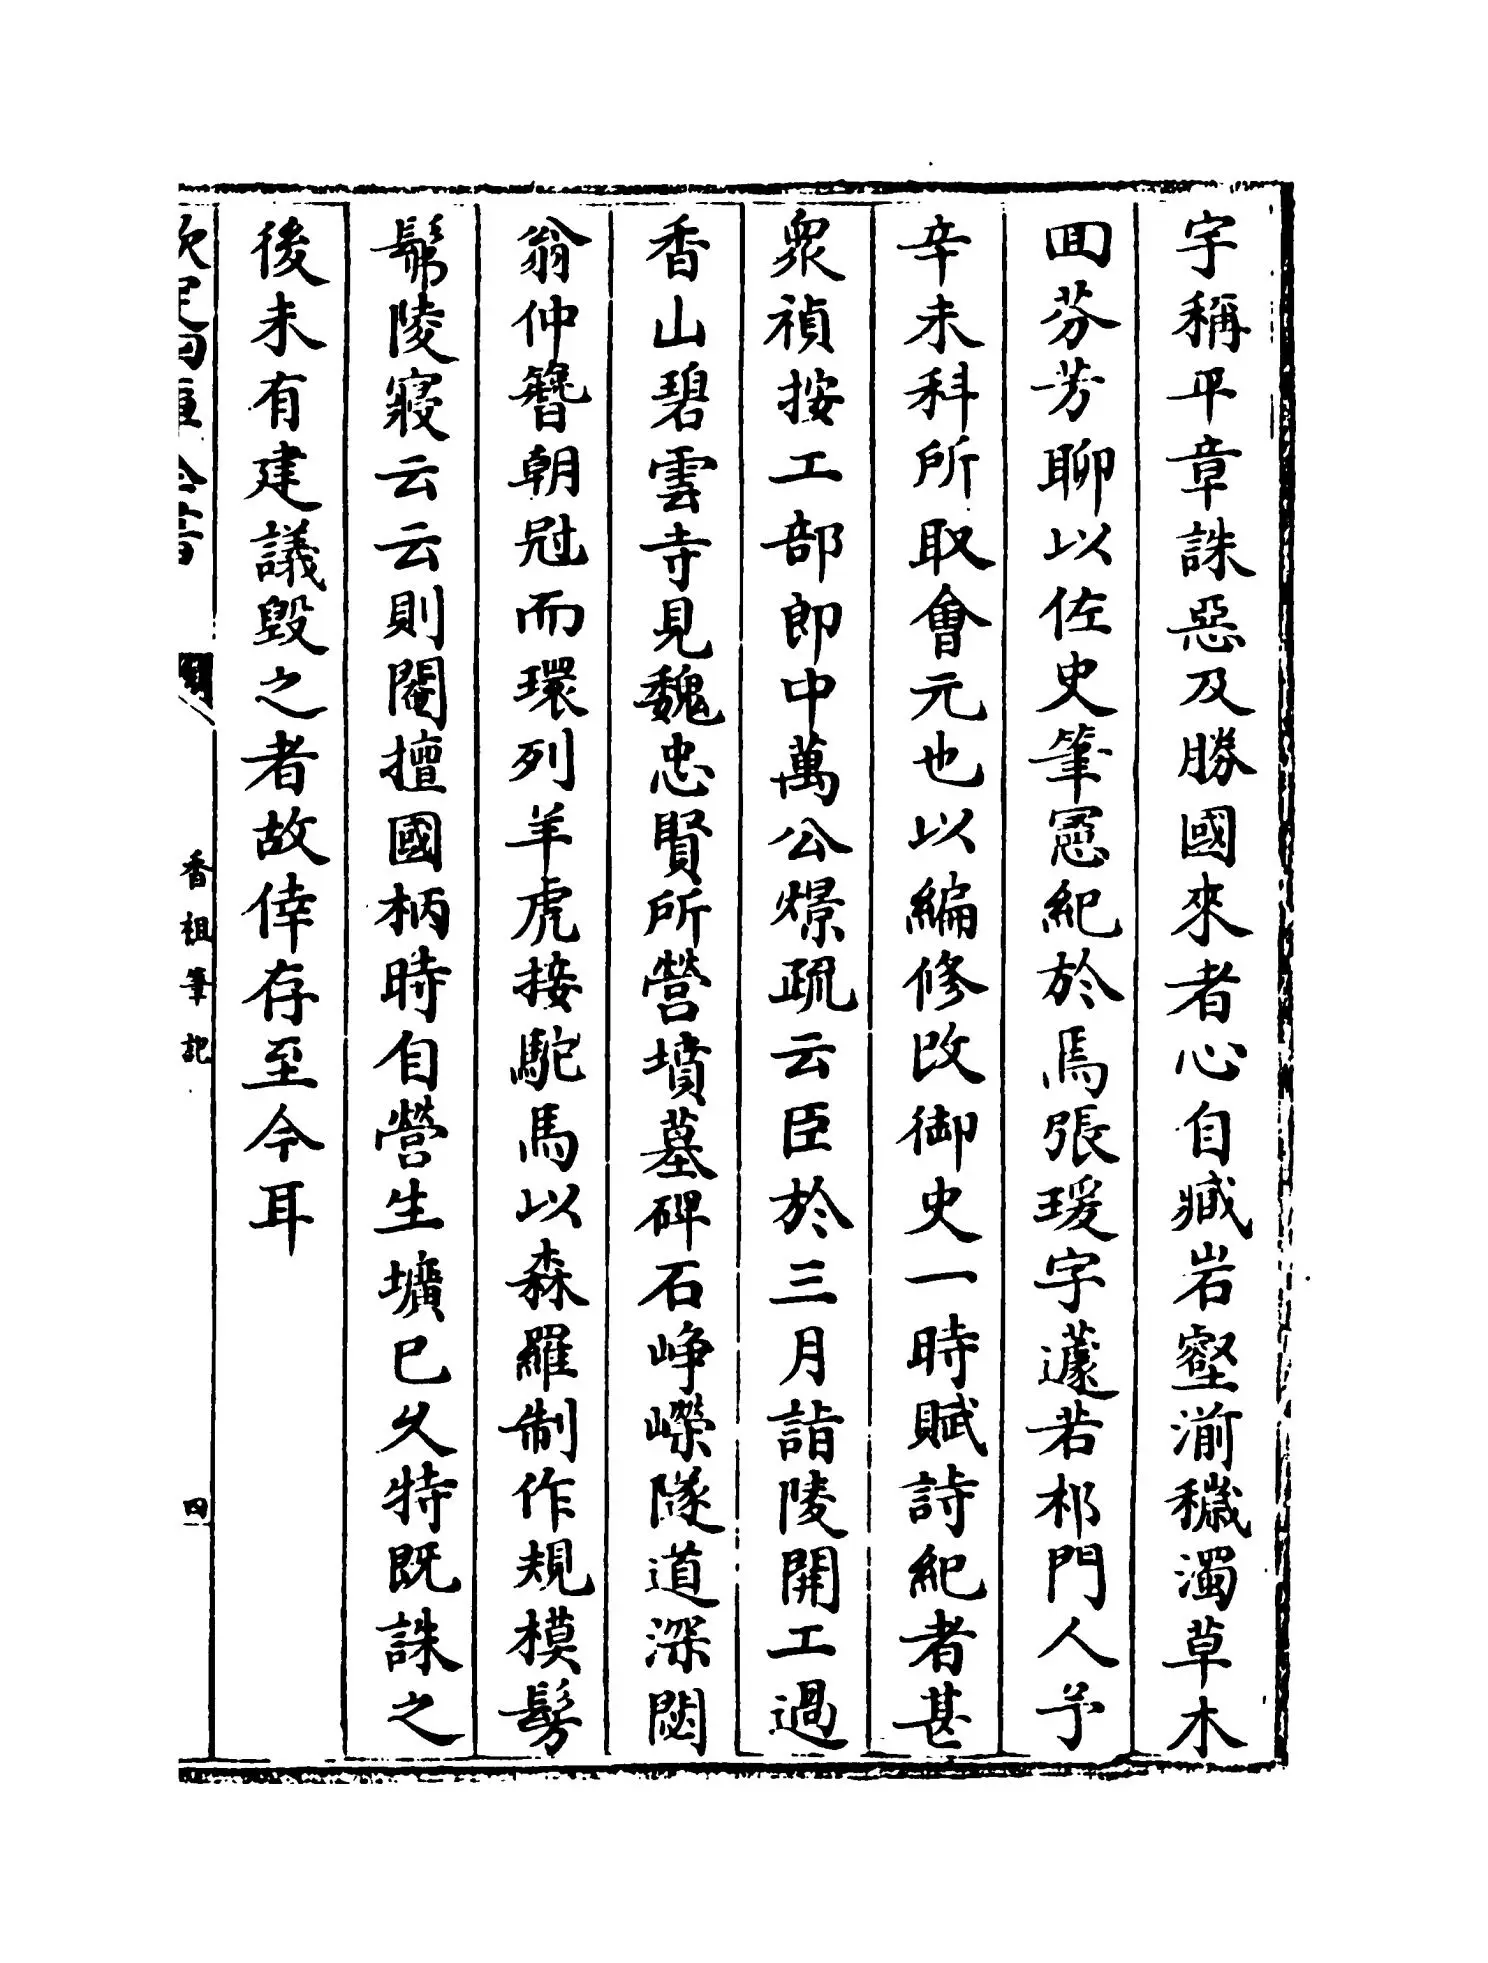 字稱平章誅惡及勝國來者心自臧岩壑湔穢濁草木
回芬芳聊以佐史筆冩紀於焉張瑗字蘧若祁門人予
辛未科所取會元也以編修改御史一時賦詩紀者甚
衆禎按工部郎中萬公燝疏云臣於三月詣陵開工過
香山碧雲寺見魏忠賢所營墳墓碑石崢嶸隧道深閟
翁仲簪朝冠而環列羊虎接駝馬以森羅制作規模髣
髴陵寢云云則閹擅國柄時自營生壙已久特既誅之
後未有建議毀之者故倖存至今耳
欽定四庫全書
香祖筆記
四